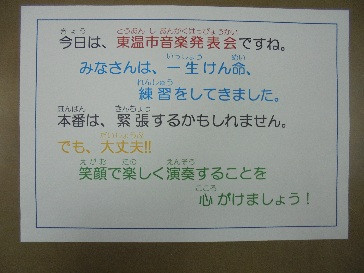 今日は、東温市音楽発表会ですね。
みなさんは、一生けん命、
練習をしてきました。
本番は、緊張するかもしれません。
でも、大丈夫!!
笑顔で楽しく演奏することを
心がけましょう！